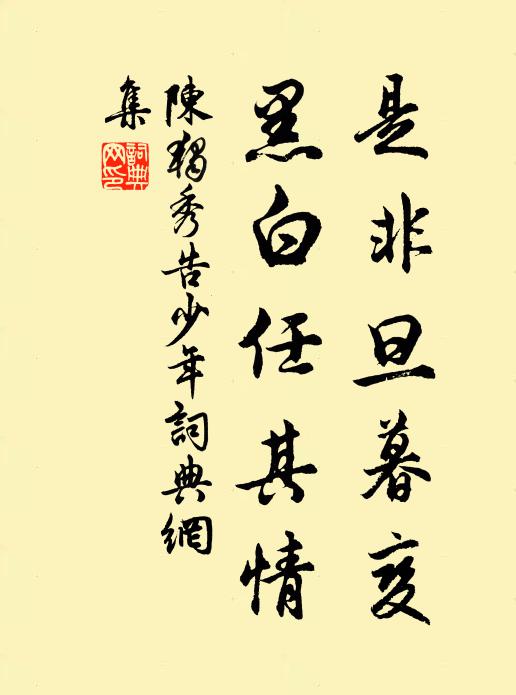 是非旦暮变
黑白任其情
陳獨秀告少年詞典網
集
詞典網印